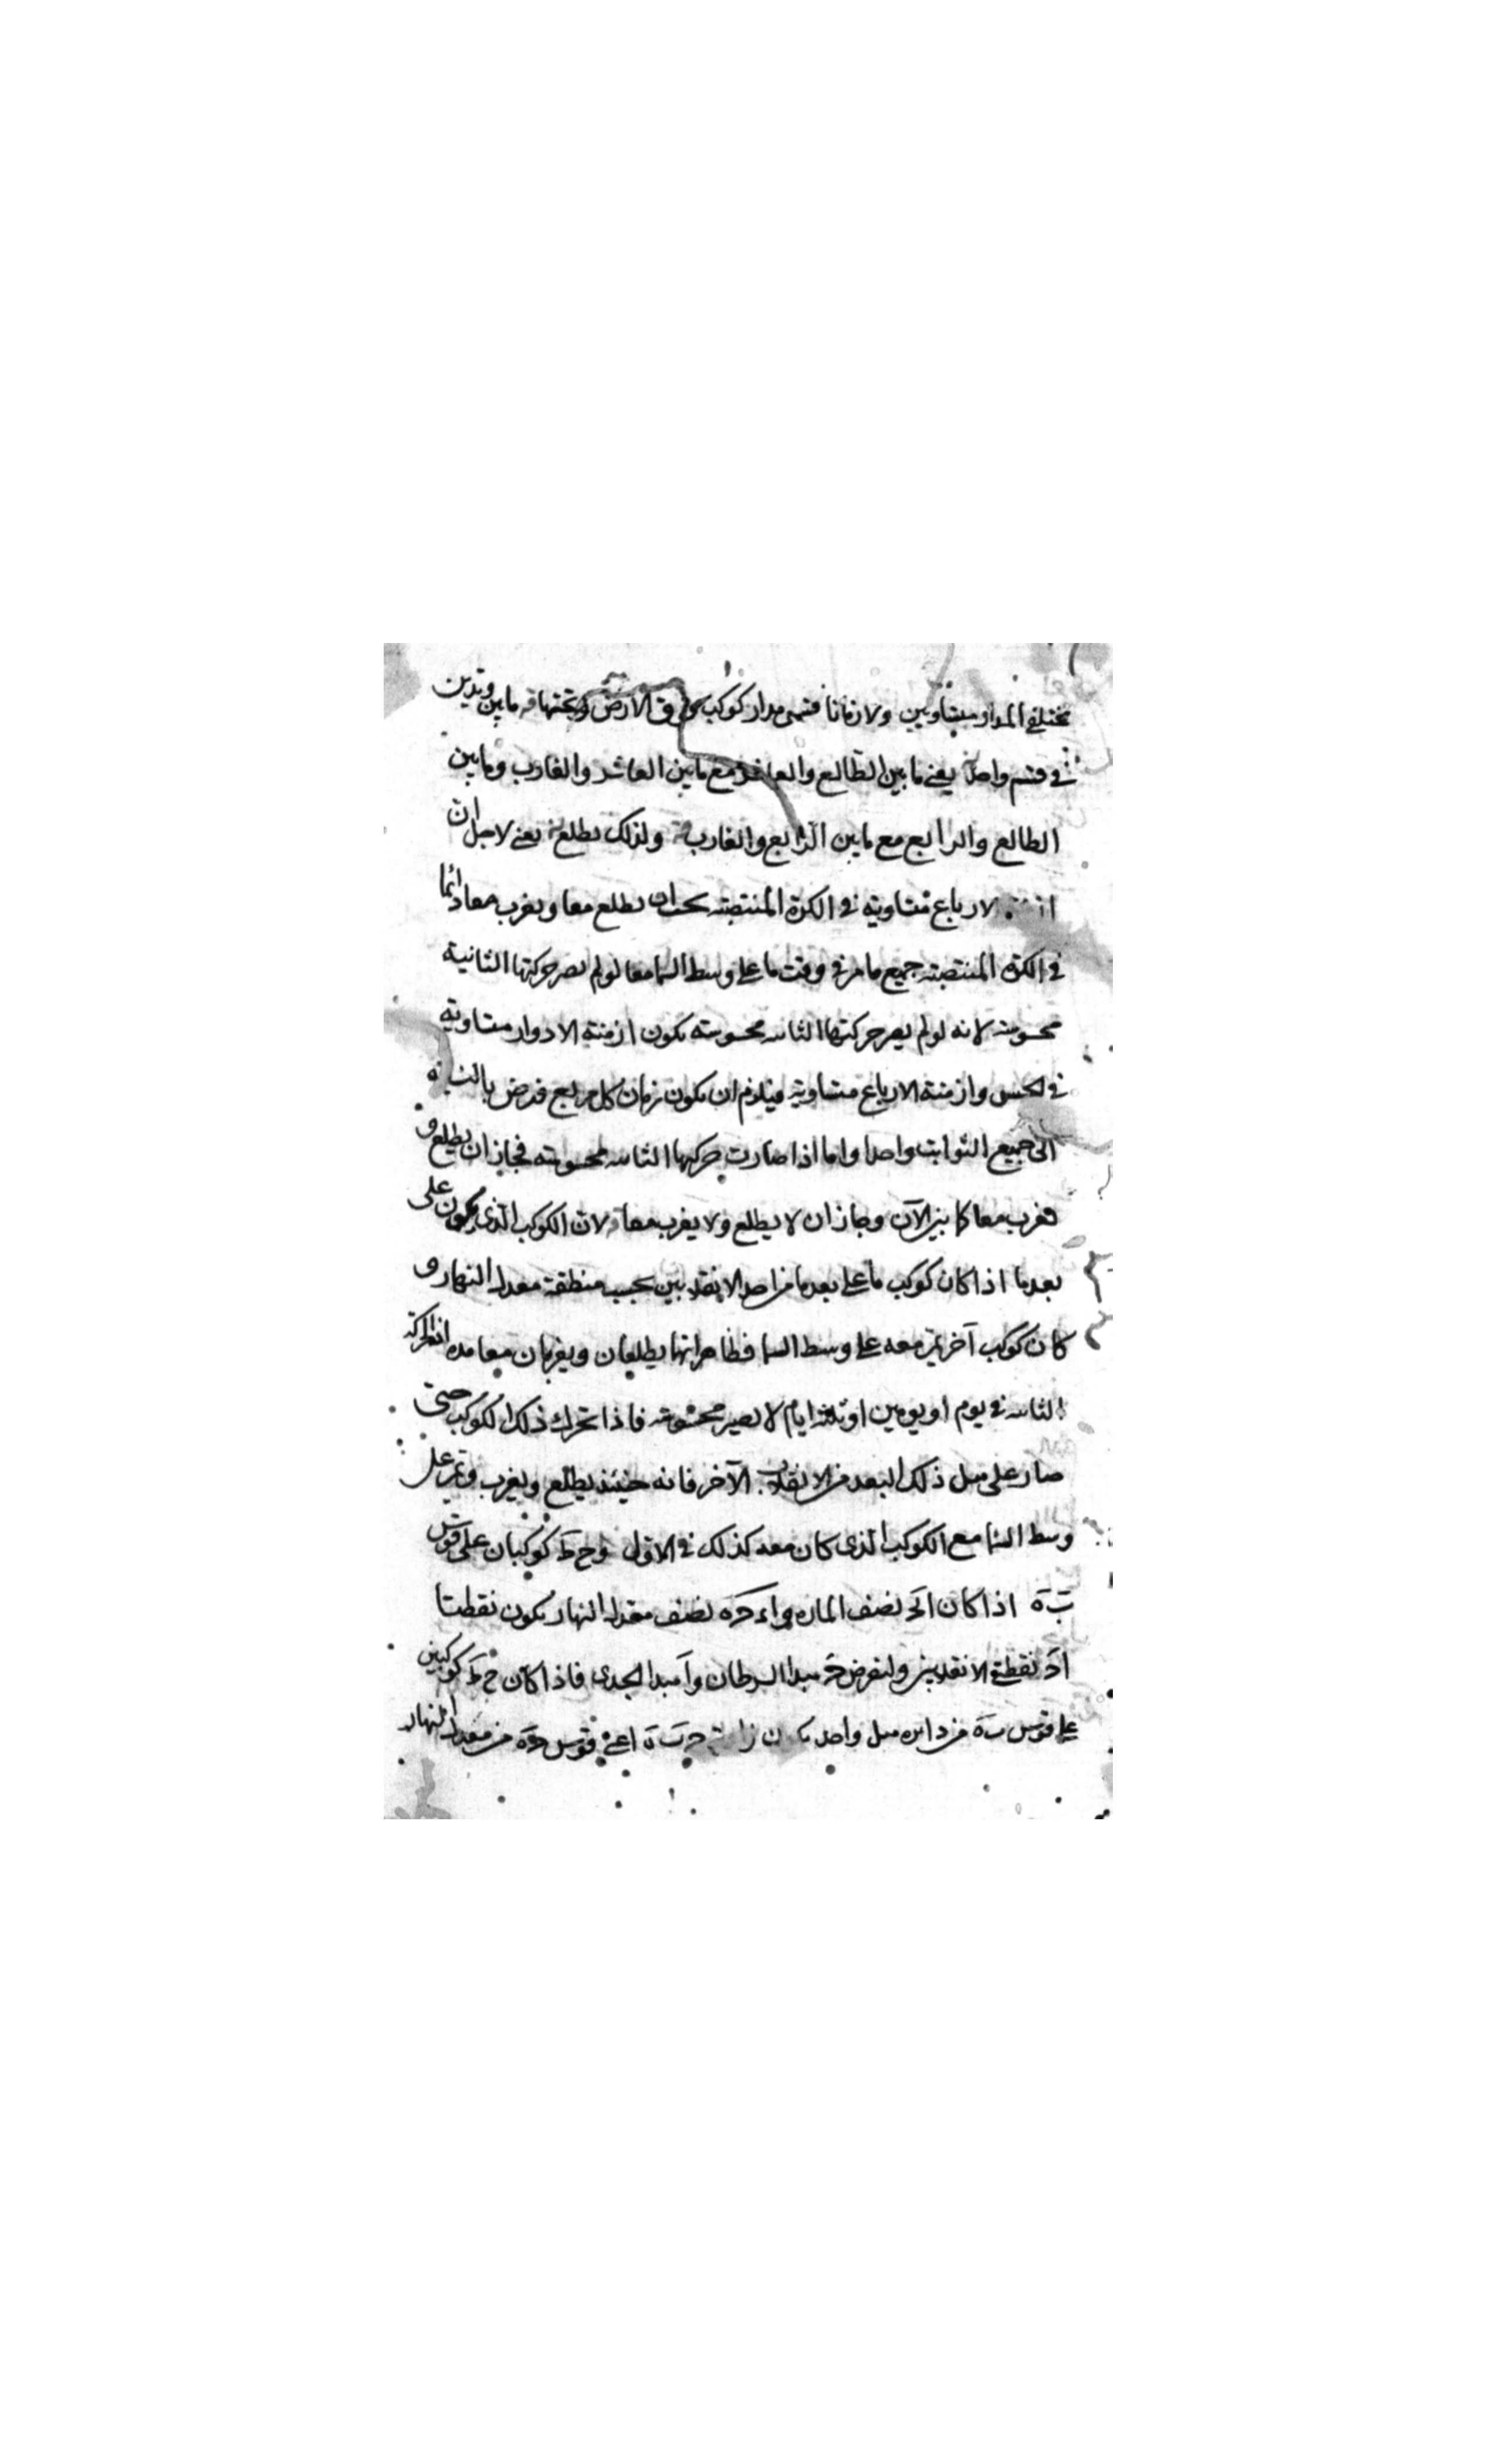 مختلفي المدار متساويين ولا زمانا قسمي مدار كوكب فوق الارض وتحتها ما بين وتدين
في قسم واحد يعني ما بين الطالع والعاشر مع ما بين العاشر والغارب وما بين
الطالع والرابع مع ما بين الرابع والغارب ولذلك يطلع يعني لاجل ان
الارباع متساوية في الكرة المنتصبة يجب ان يطلع معا ويغرب معا دائما
في الكرة المنتصبة جميع ما مر في وقت ما على وسط السما معا لو لم يصر حركتها الثانية
محسوسة لانه لو لم يصر حركتها الثانية محسوسة يكون ازمنة الادوار متساوية
في الحس وازمنة الارباع متساوية فيلزم ان يكون زمان كل ربع فرض بالنسبة
الى جميع الثوابت واحدا واما اذا صارت حركتها الثانية محسوسة فجاز ان يطلع و
يغرب معا كما بين الآن وجاز ان لا يطلع ولا يغرب معا لان الكوكب الذي يكون على
بعد ما اذا كان كوكب ما على بعد ما من احد الانقلابين بحسب منطقة معدل النهار و
كان كوكب آخر يمر معه على وسط السما فظاهر انهما يطلعان ويغربان معا مدة اذ الحركة
الثانية في يوم او يومين او ثلثة ايام لا يصير محسوسة فاذا تحرك ذلك الكوكب حتى
صار على مثل ذلك البعد من الانقلاب الآخر فانه حينئذ يطلع ويغرب ويمر على
وسط السما مع الكوكب الذي كان معه كذلك في الاول وح ط كوكبان على قوس
ب ه اذا كان نصف المارة نصف معدل النهار يكون نقطتا
ا د نقطتي الانقلابين ولنفرض د مبدا السرطان وا مبدا الجدي فاذا كان ح ط كوكبين
على قوس ب ه من دائرة ميل واحد يكون اعني قوس من معدل النهار